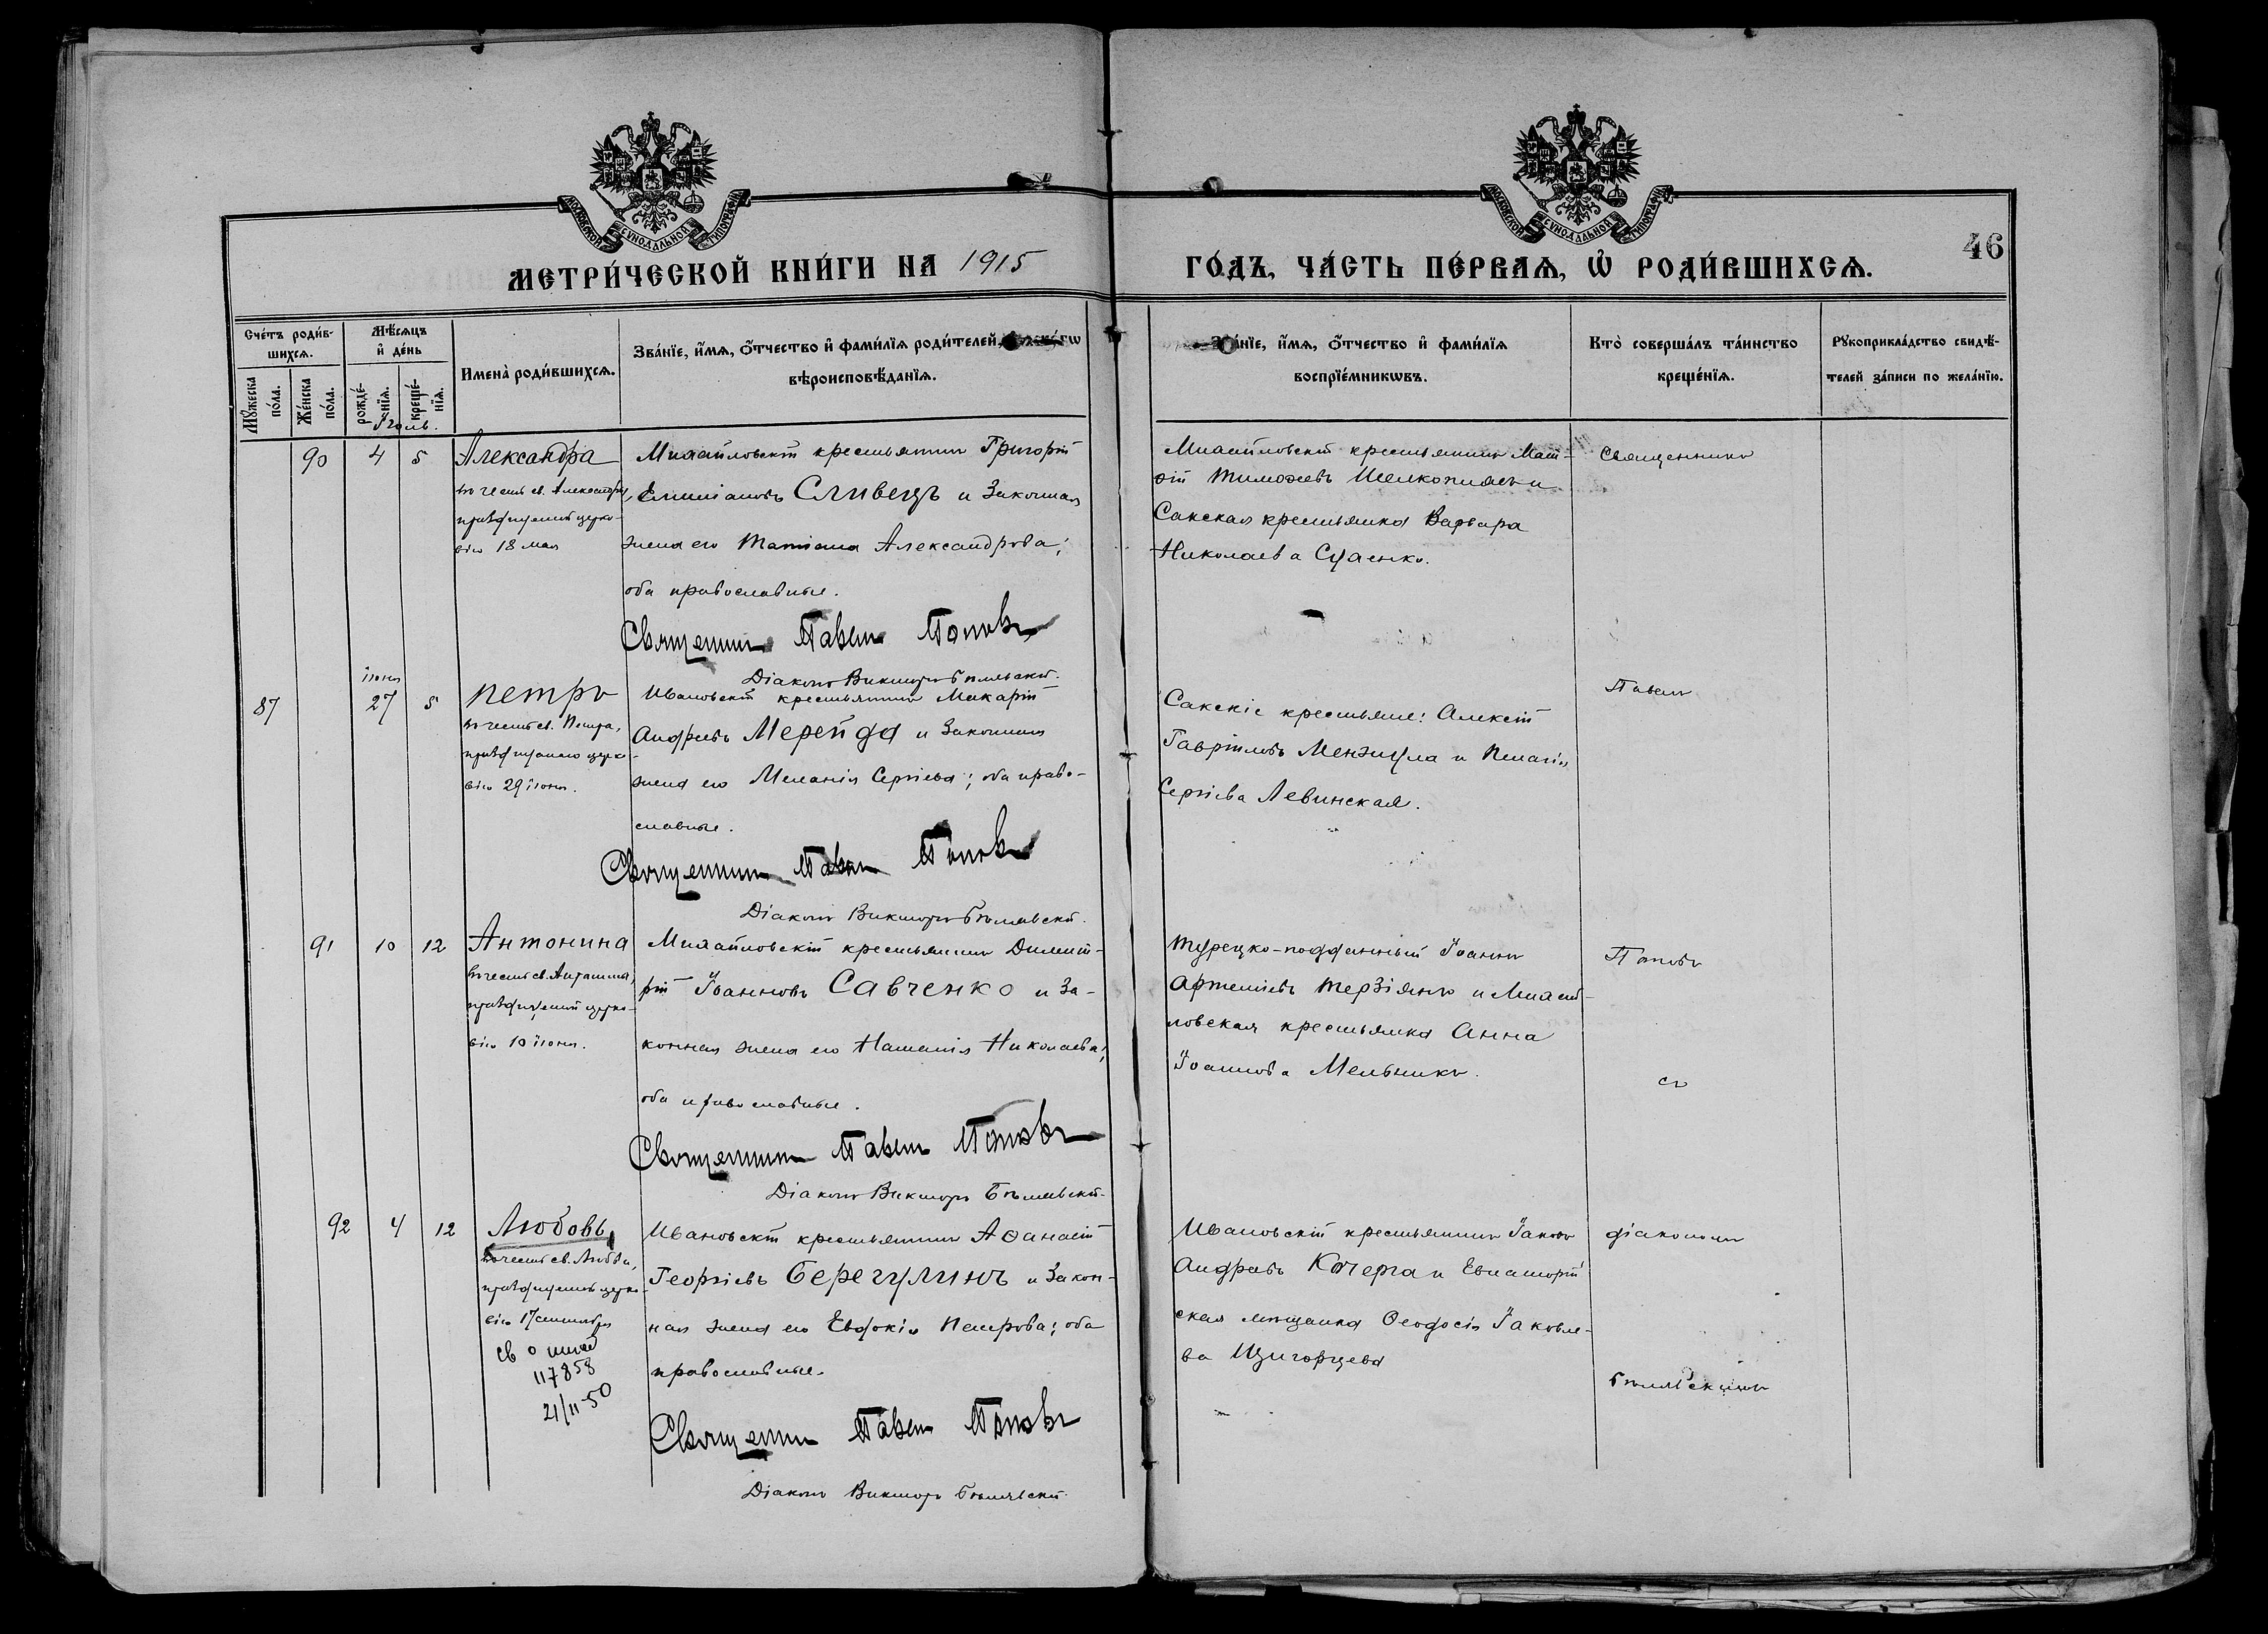 МОСКОВСКОЙ СѴНОДАЛЬНОЙ ТИПОГРАФІИ
МОСКОВСКОЙ СѴНОДАЛЬНОЙ ТИПОГРАФІИ
46
МЕТРИ́ЧЕСКОЙ КНИ́ГИ НА 1915
ГО́ДЪ, ЧА́СТЬ ПЕ́РВАѦ, Ѡ РОДИ́ВШИХСѦ.
Сче́тъ роди́в-
шихсѧ.
Мꙋ́жеска по́ла.
Же́нска по́ла.
Мѣ́сѧцъ и҆ де́нь
рожде́-нїѧ.
креще́-нїѧ.
Имена̀ роди́вшихсѧ.
Зва́нїе, и҆́мѧ, ѻ҆́тчество и҆ фами́лїѧ роди́телей,
вѣроисповѣ́данїѧ.
и҆́мѧ, ѻ҆́тчество и҆ фами́лїѧ
воспрїе́мникѡвъ.
Кто̀ соверша́лъ та́инство
креще́нїѧ.
Рꙋкоприкла́дство свидѣ́-
телей за́писи по жела́нїю.
Іюль.
90 4 5 Александра
въ честь св. Александры,
празднуемой церко-
вію 18 мая
Михайловскій крестьянинъ Григорій
Сливецъ и законная
жена его Татіана Александрова;
оба православные.
Священникъ Павелъ Поповъ
Діаконъ Викторъ Бѣлявскій.
Михайловскій крестьянинъ Мат-
ѳій Тимоѳеевъ Шелкоплясъ и
Сакская крестьянка Варвара
Николаева Суаенко.
Священникъ
87 іюня 27 5 Петръ
въ честь св. Петра,
празднуемаго церко-
вію 29 іюня.
Ивановскій крестьянинъ Макарій
Андреевъ Мерейда и законная
жена его Меланія Сергіева; оба право-
славные.
Священникъ Павелъ Поповъ
Діаконъ Викторъ Бѣлявскій.
Сакскіе крестьяне: Алексій
Гавріиловъ Мензшула и Пелагія
Сергіева Левинская.
Павелъ
91 10 12 Антонина
въ честь св. Антонины,
празднуемой церко-
вію 10 іюня.
Михайловскій крестьянинъ Димит-
рій Іоанновъ Савченко и за-
конная жена его Наталія Николаева;
оба православные.
Священникъ Павелъ Поповъ
Діаконъ Викторъ Бѣлявскій.
Турецко-подданный Іоаннъ
Артеміевъ Терзіянъ и Михай-
ловская крестьянка Анна
Іоаннова Мельникъ.
Поповъ
съ
92 4 12 Любовь,
въ честь св. Любви,
празднуемой церко-
вію 17 сентября
117858
21/11-50
Ивановскій крестьянинъ Аѳанасій
Георгіевъ Берегулинъ и закон-
ная жена его Евдокія Петрова; оба
православные.
Священникъ Павелъ Поповъ
Діаконъ Викторъ Бѣлявскій
Ивановскій крестьянинъ Іаковъ
Андреевъ Кочерга и Евпаторій-
ская мѣщанка Ѳеодосія Іаковле-
ва Щигорцева
діакономъ
Бѣлявскимъ